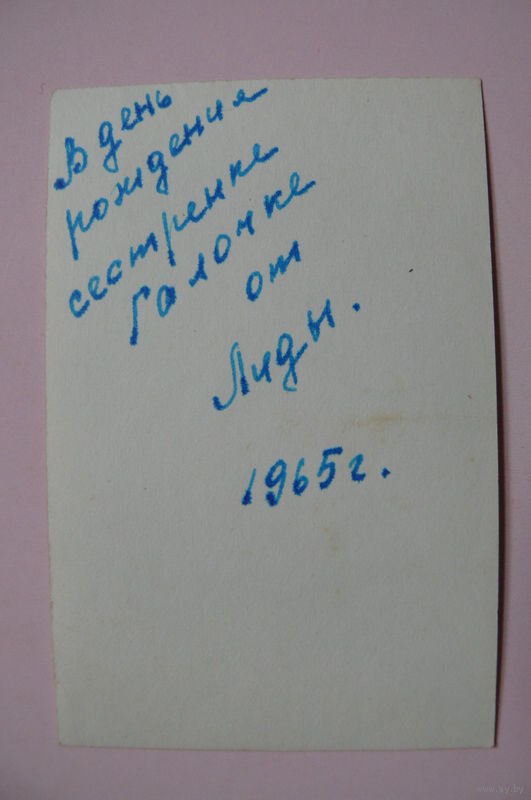 В день
рождения
сестренке
Галочке
от
Лиды.
1965 г.
www.ay.by